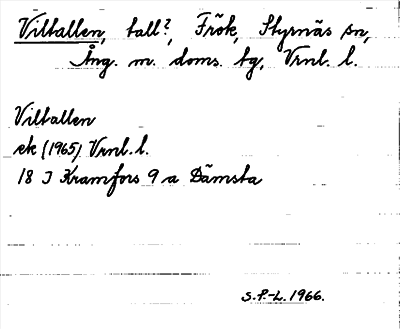 Viltallen, tall?, Frök, Styrnäs sn,
Ång. m. doms. tg, Vrnl. l.
Viltallen
ek (1965) Vrnl. l.
18 J Kramfors 9 a Dämsta
S.P.-L. 1966.